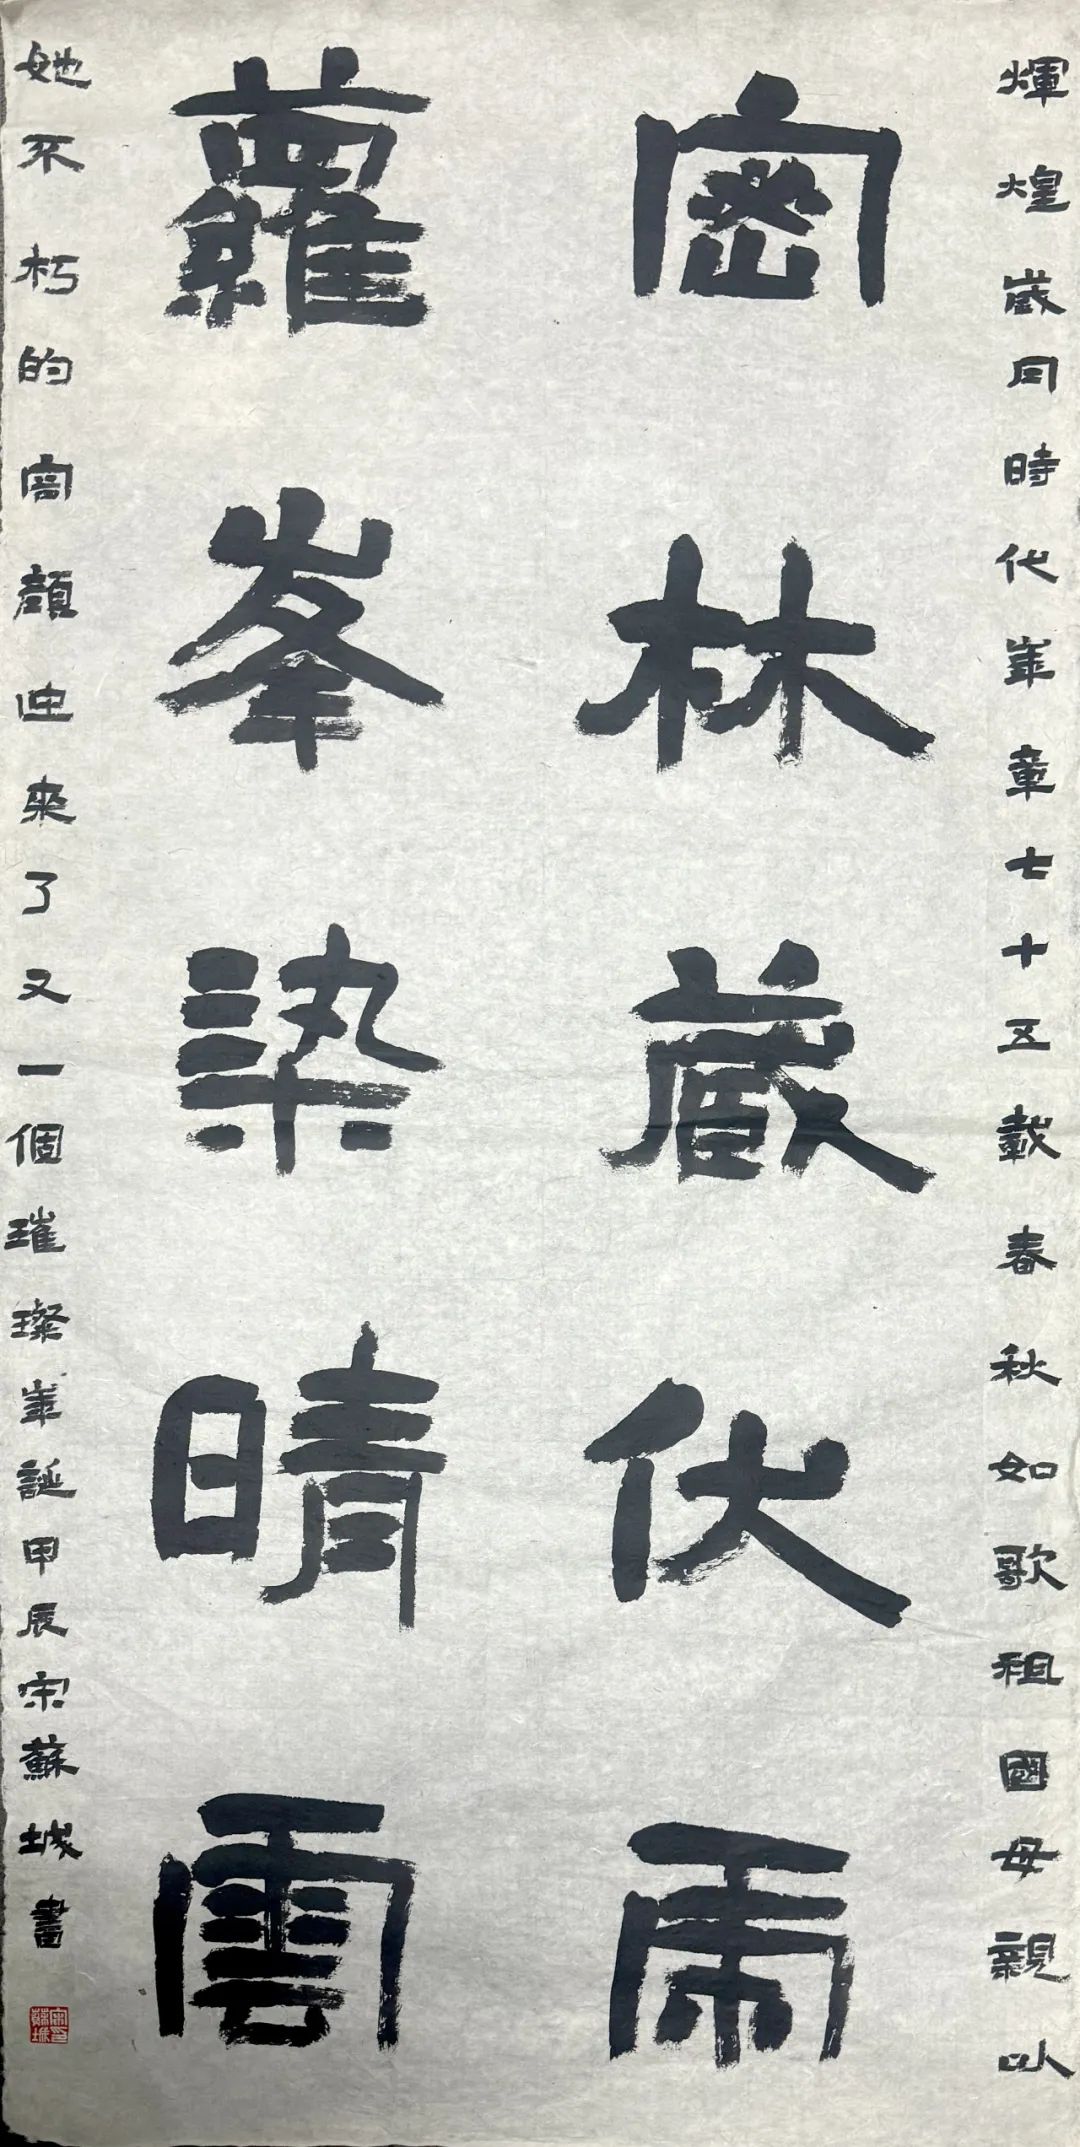 煇煌歲同時代華章七十五載春秋如歌祖國母親以
密林藏伏雨
蘿峯染晴雲
她不朽的容顏迎來了又一個璀璨華誕甲辰宋蘇城書